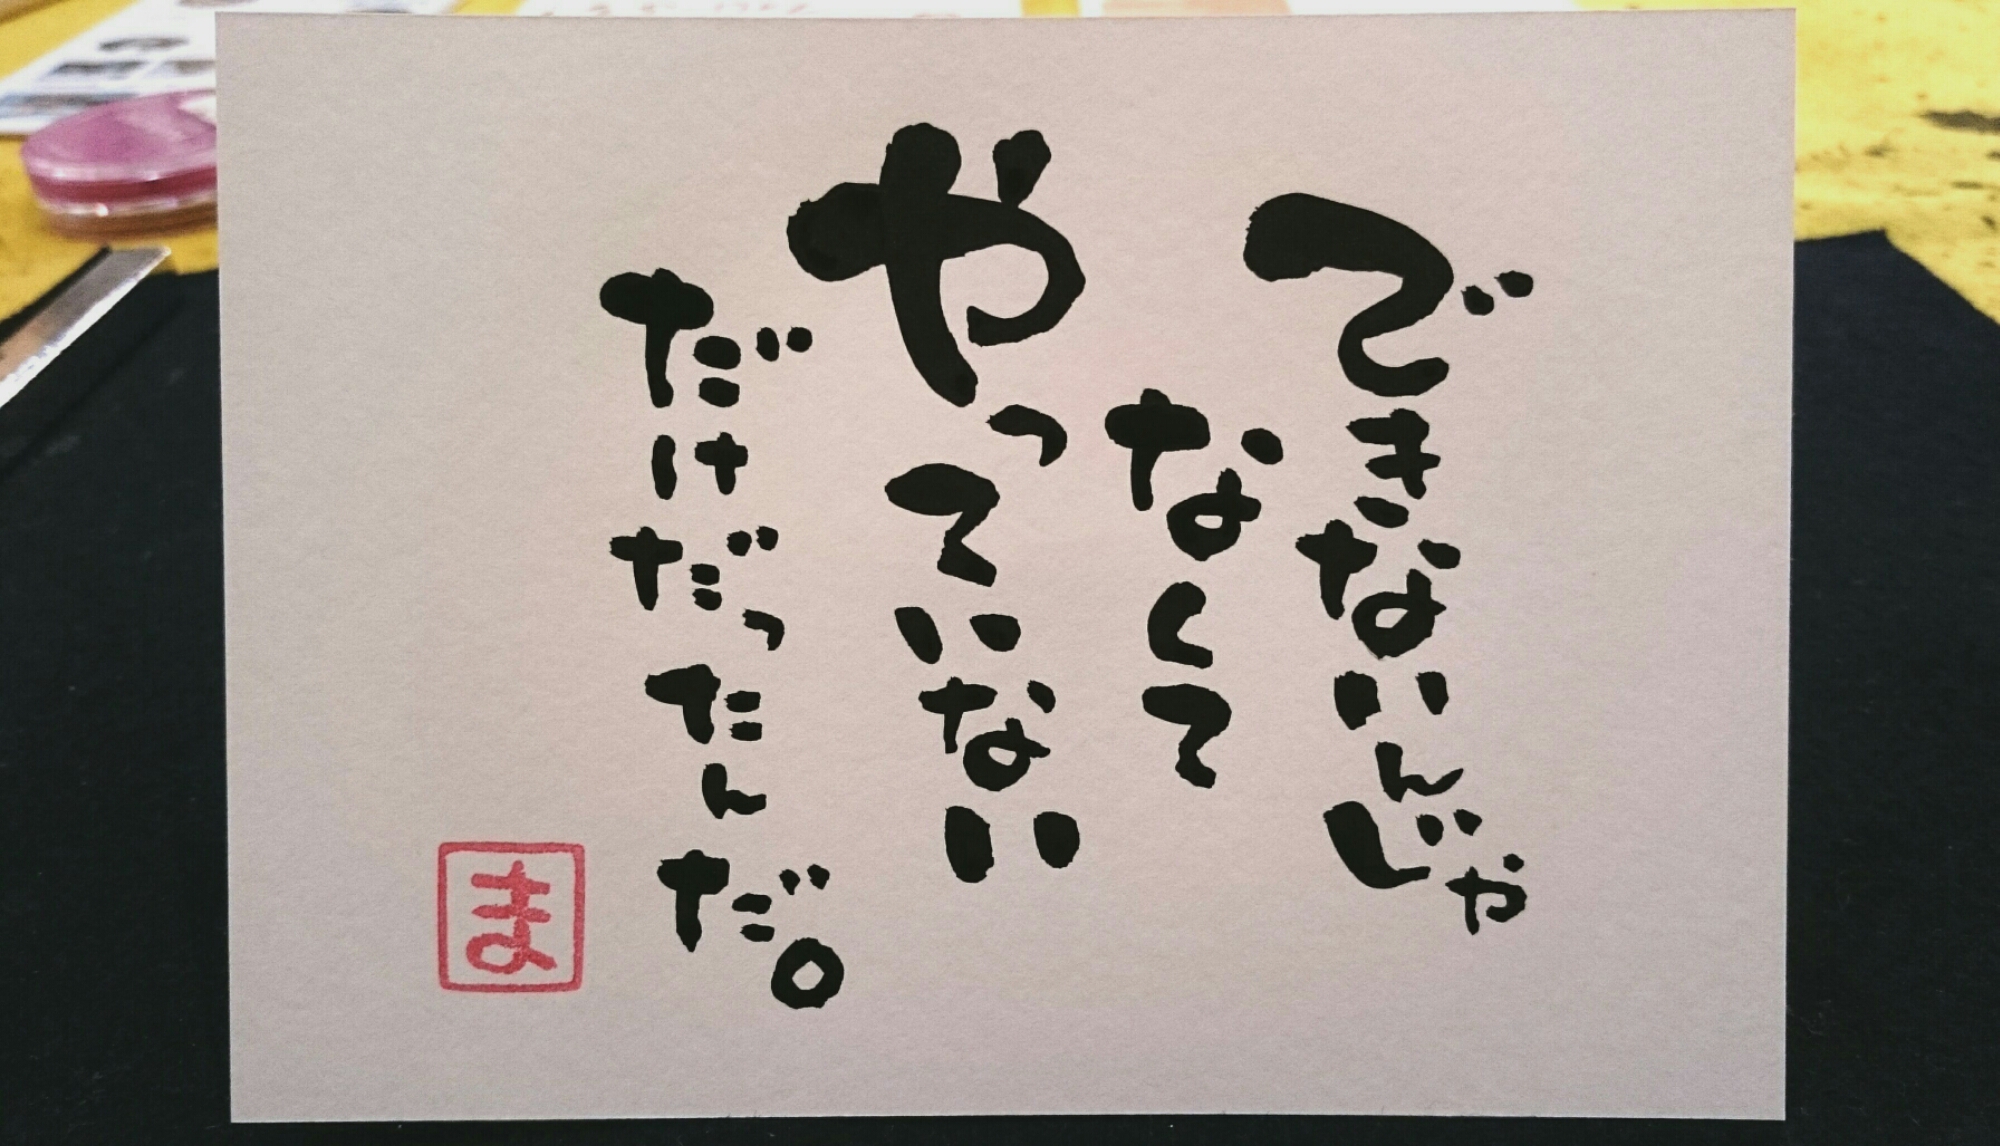 できないんじゃ
なくて
やっていない
だけだったんだ。
ま